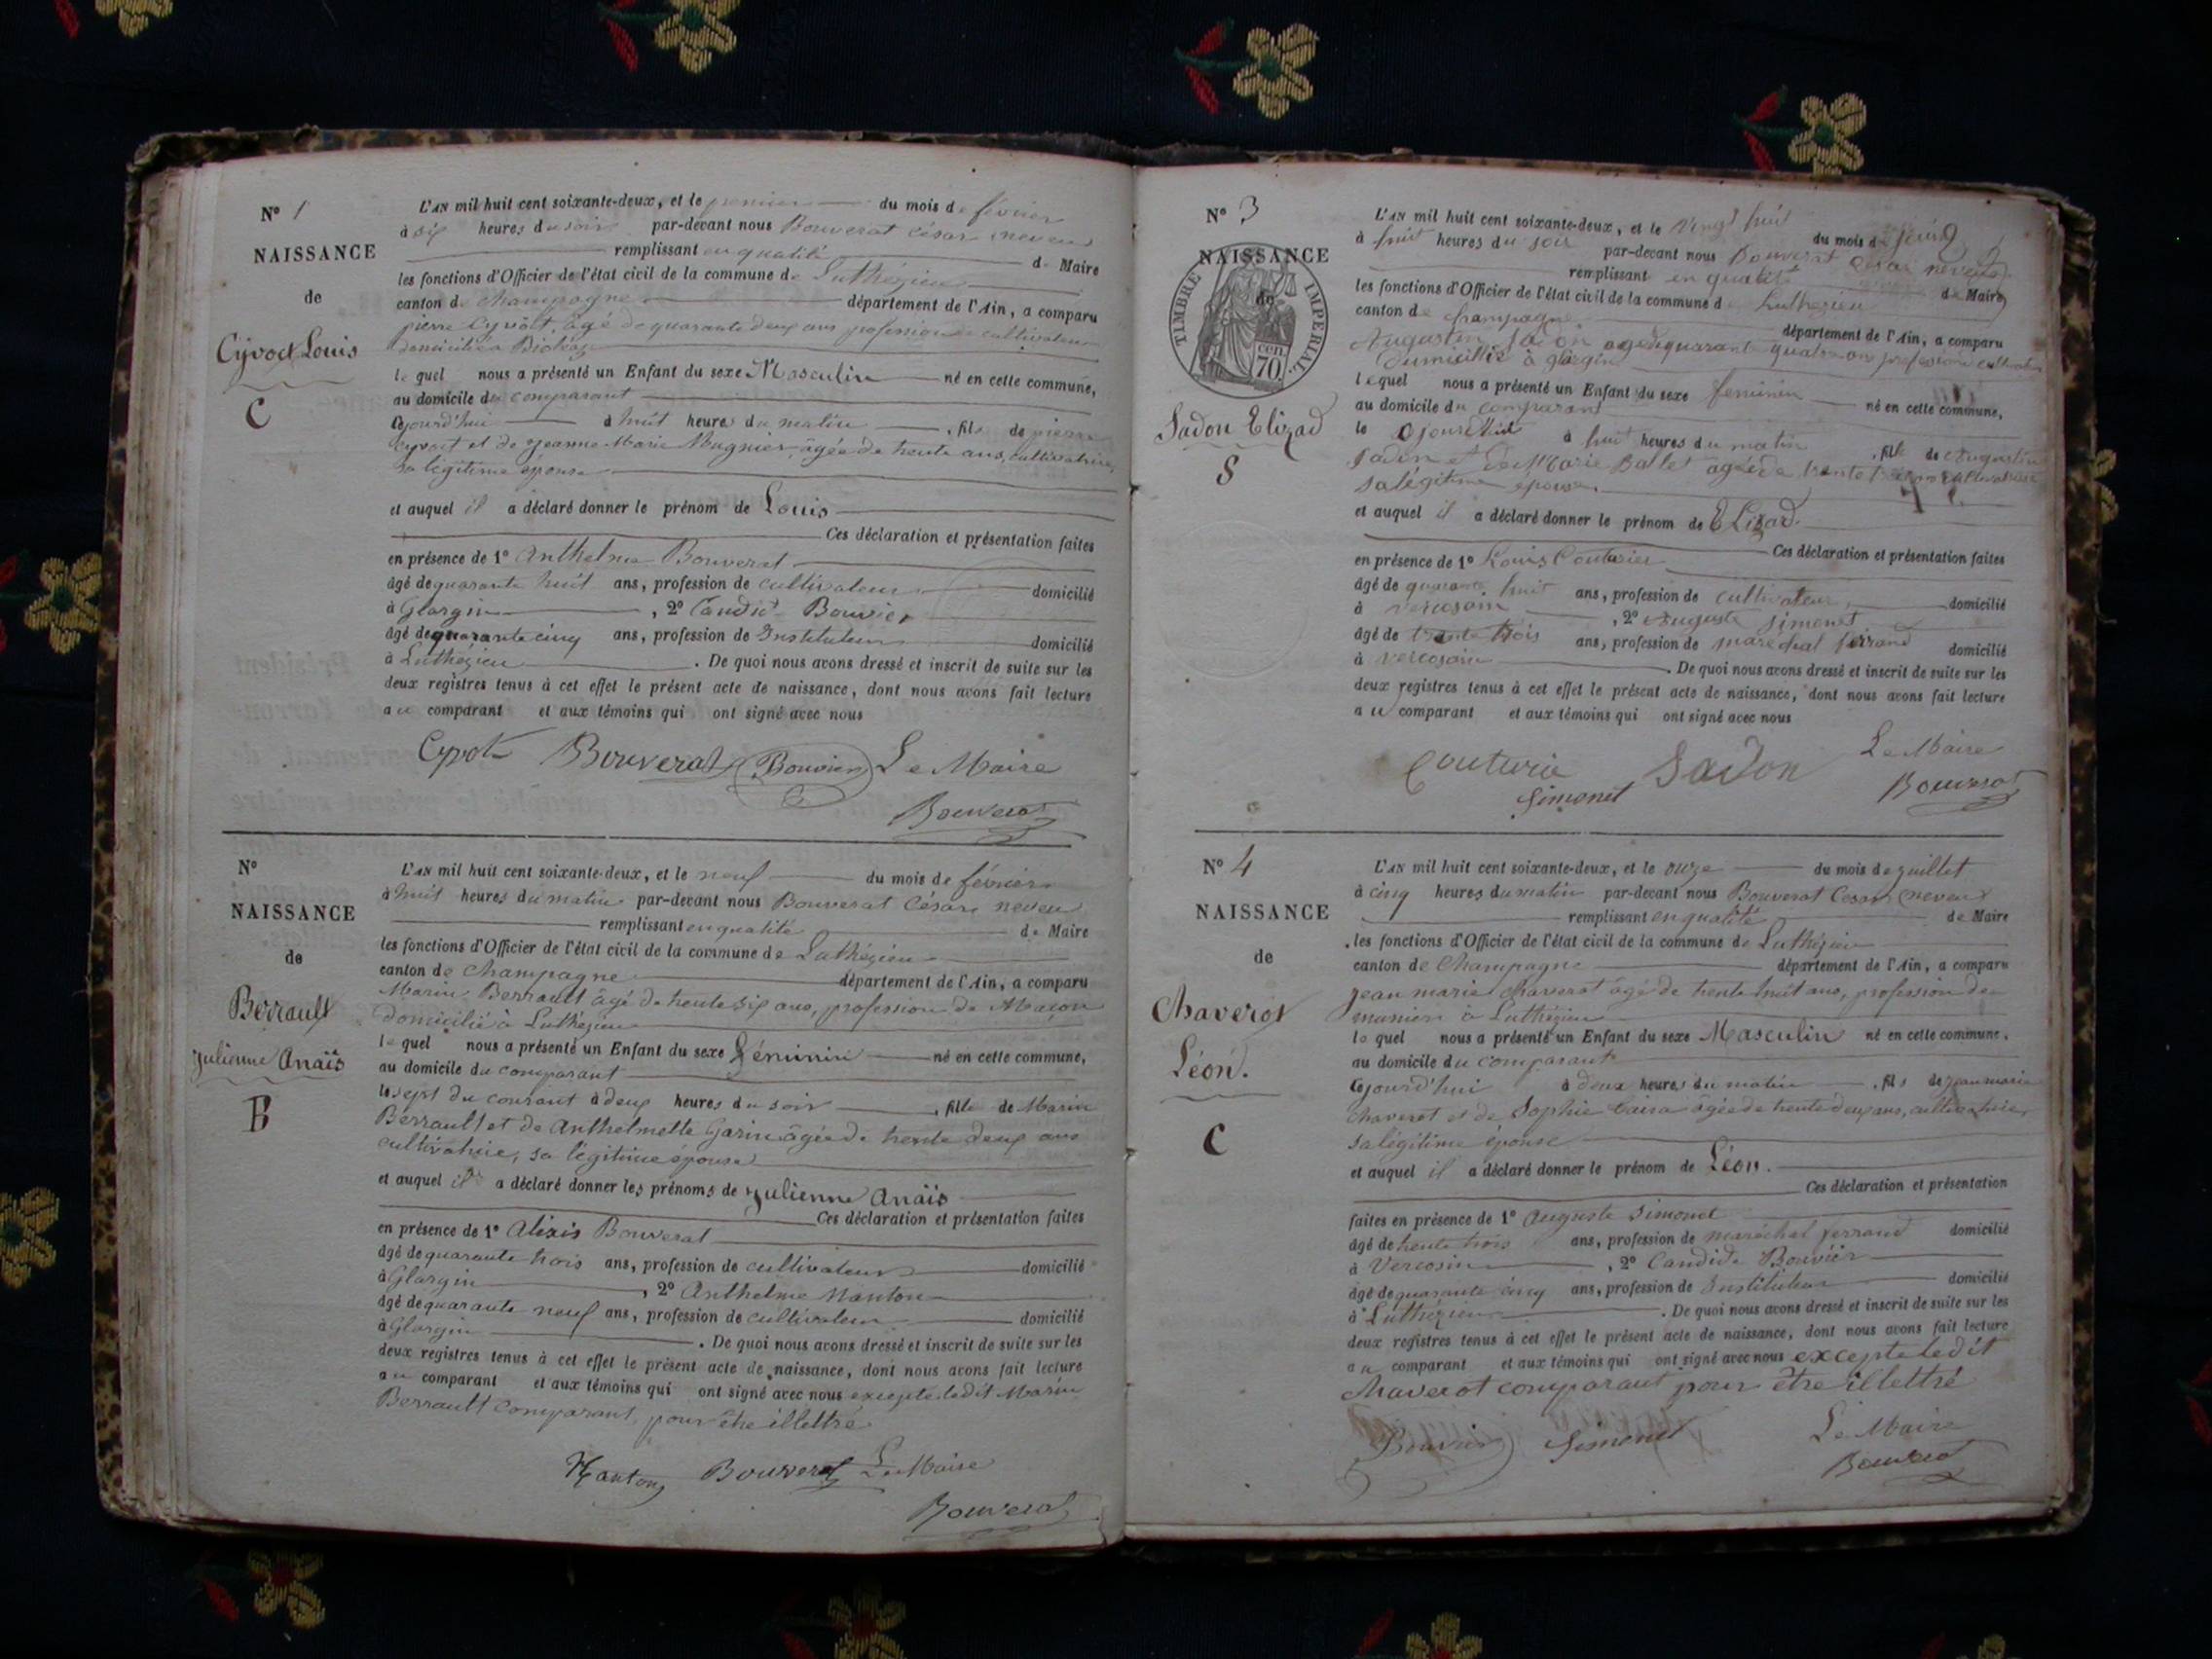 N° 1
NAISSANCE
de
Cyvoct Louis
C
L'AN mil huit cent soixante-deux, et le premier du mois de février
à six heures du soir par-devant nous Bouverat césar neveu
remplissant en qualité de Maire
les fonctions d'Officier de l'état civil de la commune de Luthézieu
canton de champagne département de l'Ain, a comparu
pierre Cyvoct, âgé de quarante deux ans profession de cultivateur
domicilié à
le quel nous a présenté un Enfant du sexe Masculin né en cette commune,
au domicile du comparant
cejourd'hui à huit heures du matin , fils de pierre
Cyvoct et de Jeanne-Marie Mugnier, âgée de trente ans, cultivatrice,
sa légitime épouse
et auquel il a déclaré donner le prénom de Louis
Ces déclaration et présentation faites
en présence de 1° Anthelme Bouverat
âgé de quarante huit ans, profession de cultivateur domicilié
à Glargin , 2° Candide Bouvier
âgé de quarante cinq ans, profession de Instituteur domicilié
à Luthézieu . De quoi nous avons dressé et inscrit de suite sur les
deux registres tenus à cet effet le présent acte de naissance, dont nous avons fait lecture
au comparant et aux témoins qui ont signé avec nous
Cyvoct Bouverat Bouvier Le Maire
Bouverat
N°
NAISSANCE
de
Berrault
Julienne Anaïs
B
L'AN mil huit cent soixante-deux, et le neuf du mois de février
à huit heures du matin par-devant nous Bouverat César neveu
remplissant en qualité de Maire
les fonctions d'Officier de l'état civil de la commune de Luthézieu
canton de champagne département de l'Ain, a comparu
Marin Berrault âgé de trente six ans, profession de Maçon
domicilié à Luthézieu
le quel nous a présenté un Enfant du sexe Féminin né en cette commune,
au domicile du comparant
le sept du courant à deux heures du soir , fille de Marin
Berrault et de Anthelmette Garin âgée de trente deux ans
cultivatrice, sa légitime épouse
et auquel il a déclaré donner les prénoms de Julienne Anaïs
Ces déclaration et présentation faites
en présence de 1° Alexis Bouverat
âgé de quarante trois ans, profession de cultivateur domicilié
à Glargin , 2° Anthelme Nanton
âgé de quarante neuf ans, profession de cultivateur domicilié
à Glargin . De quoi nous avons dressé et inscrit de suite sur les
deux registres tenus à cet effet le présent acte de naissance, dont nous avons fait lecture
au comparant et aux témoins qui ont signé avec nous excepté ledit Marin
Berrault comparant, pour être illettré
Nanton Bouverat Le Maire
Bouverat
N° 3
NAISSANCE
de
TIMBRE IMPERIAL
70 cen.
Sadon Elizad
S
L'AN mil huit cent soixante-deux, et le vingt huit du mois de juin
à huit heures du soir par-devant nous Bouverat César neveu
remplissant en qualité de Maire
les fonctions d'Officier de l'état civil de la commune de Luthezieu
canton de champagne département de l'Ain, a comparu
Augustin Sadon agé de quarante quatre ans profession cultivateur
Dumicillié à glargin
le quel nous a présenté un Enfant du sexe feminin né en cette commune,
au domicile du comparant
le ojourd'hui à huit heures du matin , fille de Augustin
Sadon et de Marie Ballet âgée de trente cultivatrice
sa légitime épouse
et auquel il a déclaré donner le prénom de Elizad
Ces déclaration et présentation faites
en présence de 1° Louis Couturier
âgé de quarante huit ans, profession de cultivateur domicilié
à vercosoin , 2° Auguste Simonet
âgé de trente trois ans, profession de maréchal ferrand domicilié
à vercosoin . De quoi nous avons dressé et inscrit de suite sur les
deux registres tenus à cet effet le présent acte de naissance, dont nous avons fait lecture
au comparant et aux témoins qui ont signé avec nous
Couturie Sadon Le Maire
Simonet Bouverat
N° 4
NAISSANCE
de
Chaverot
Léon.
C
L'AN mil huit cent soixante-deux, et le onze du mois de juillet
à cinq heures du matin par-devant nous Bouverat Cesar neveu
remplissant en qualité de Maire
les fonctions d'Officier de l'état civil de la commune de Luthézieu
canton de Champagne département de l'Ain, a comparu
Jean marie Chaverot âgé de trente huit ans, profession de
munier à Luthézieu
le quel nous a présenté un Enfant du sexe Masculin né en cette commune.
au domicile du comparant
cejourd'hui à deux heures du matin , fils de Jean marie
Chaverot et de Sophie âgée de trente deux ans, cultivatrice,
sa légitime épouse
et auquel il a déclaré donner le prénom de Léon.
Ces déclaration et présentation
faites en présence de 1° Auguste Simonet
âgé de trente trois ans, profession de maréchal ferrand domicilié
à Vercosin , 2° Candide Bouvier
âgé de quarante cinq ans, profession de Instituteur domicilié
à Luthézieu . De quoi nous avons dressé et inscrit de suite sur les
deux registres tenus à cet effet le présent acte de naissance, dont nous avons fait lecture
au comparant et aux témoins qui ont signé avec nous excepté ledit
Chaverot comparant pour être illettré
Bouvier Simonet Le Maire
Bouverat